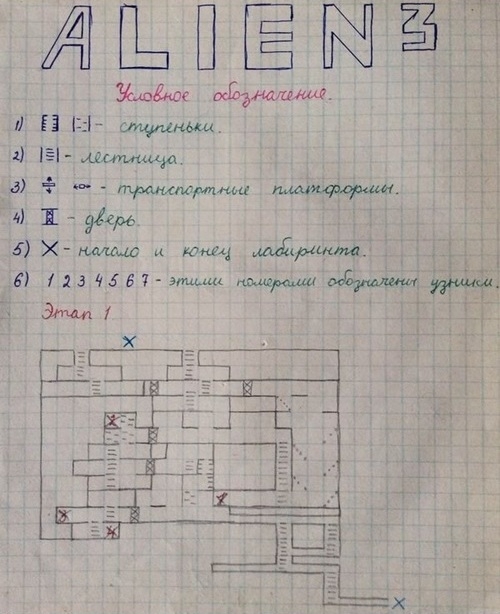 ALIEN 3
Условное обозначение.
1) - ступеньки.
2) - лестница.
3) - транспортные платформы.
4) - дверь.
5) X - начало и конец лабиринта.
6) 1 2 3 4 5 6 7 - этими номерами обозначены узники.
Этап 1
X
X